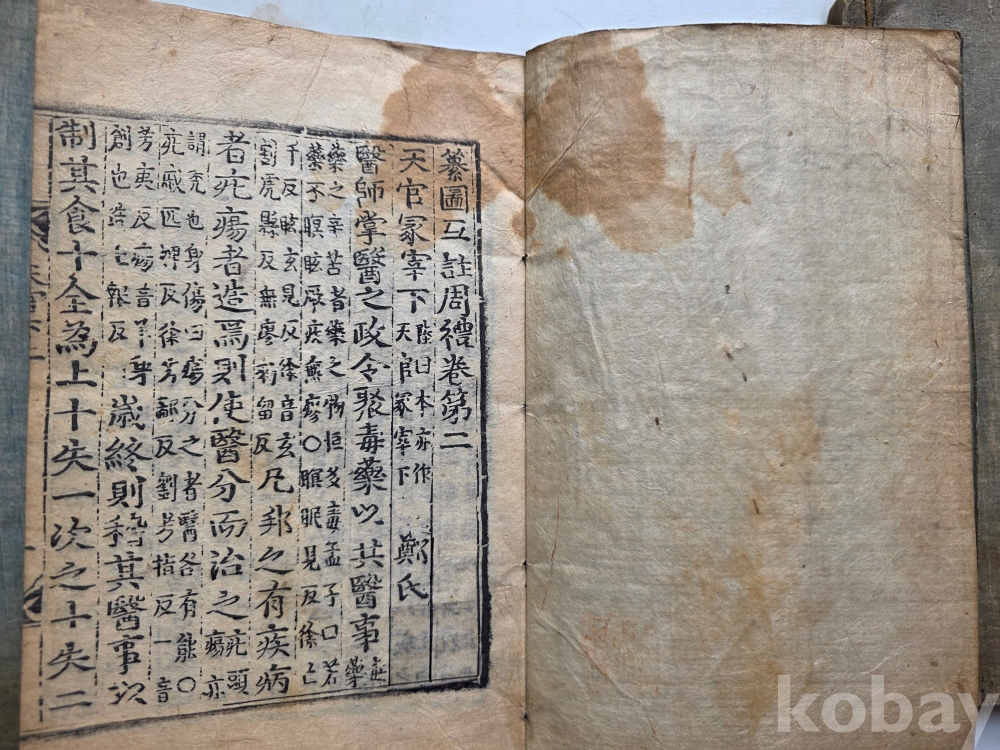 纂圖互註周禮卷第二
天官冢宰下 陸曰本亦作天官冢宰下 鄭氏
醫師掌醫之政令聚毒藥以共醫事 毒藥
藥之辛苦者藥之物恒多毒孟子曰若
藥不瞑眩厥疾無瘳〇瞑眠見反徐亡
千反眩玄見反徐音玄
劉虎縣反無瘳勑留反 凡邦之有疾病
者疕瘍者造焉則使醫分而治之 疕頭瘍亦
謂禿也身傷曰瘍分之者醫各有能〇
疕戚匹婢反徐芳鄙反劉芳指反一音
芳夷反瘍音羊身
創也造七報反 歲終則稽其醫事以
制其食十全為上十失一次之十失二
kobay